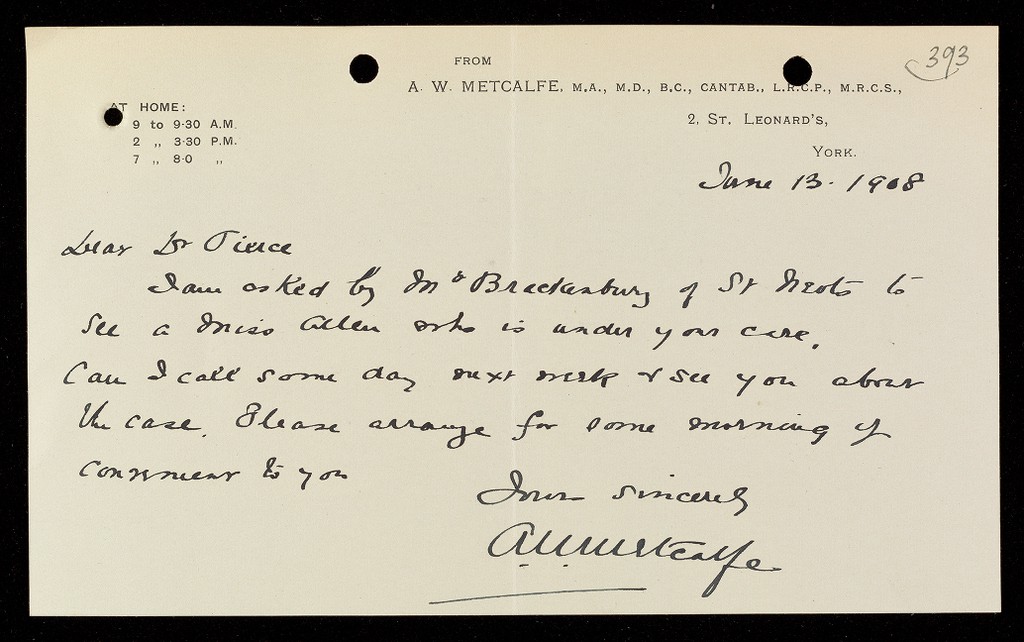 393
FROM
A. W. METCALFE, M.A., M.D., B.C., CANTAB., L.R.C.P., M.R.C.S.,
2, ST. LEONARD'S,
YORK.
AT HOME:
9 to 9·30 A.M.
2 „ 3·30 P.M.
7 „ 8·0 „
June 13. 1908
Dear Dr Pierce
I am asked by Mr Brackenbury of St Neots to
see a Miss Allen who is under your care.
Can I call some day next week & see you about
the case. Please arrange for some morning if
convenient to you
Yours sincerely
A.W. Metcalfe